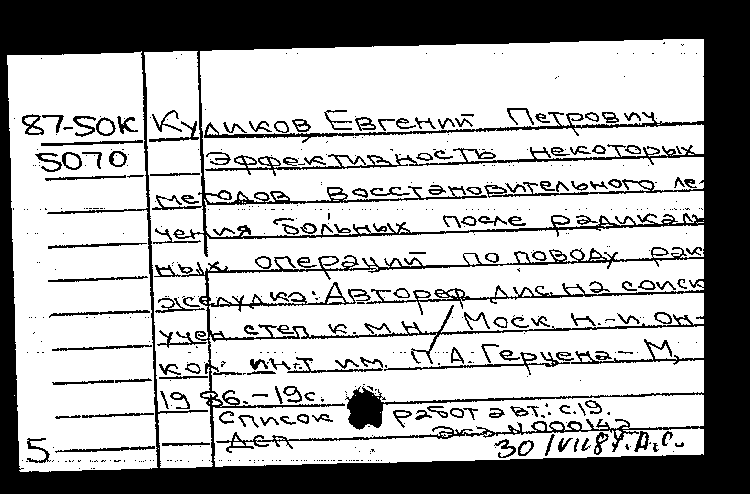 87-50К Куликов Евгений Петрович
5070 Эффективность некоторых
методов восстановительного ле-
чения больных после радикаль
ных операций по поводу рак
желудка: Автореф дис. на соиск
учен степ к.м.н. / Моск. н.-и. он-
кол. ин.т им. П.А. Герцена - М,
1986. - 19с.
список работ авт.: с.19.
Экз N 000142
5 ДСП 30/VII 87. А.С.